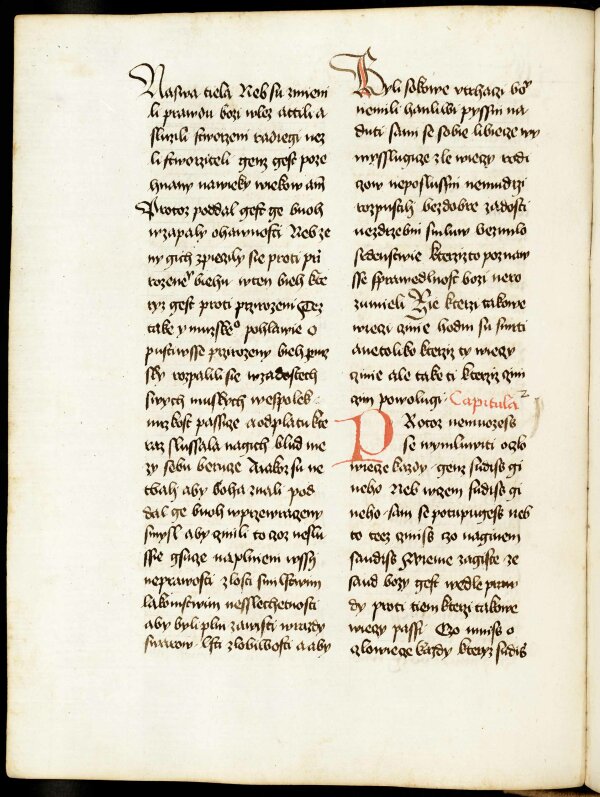 Naswa tiela Neb su zmieni
li prawdu bozi w lez a ctili a
sluzili stworzeni radiegi nez
li stworziteli genz gest poze
hnany na wieky wiekow am̅
Protoz poddal gest ge buoh
w zapaly ohawnosti Neb ze
ny gich zpiezily sie proti przi
rozene° biehu w ten bieh kte
ryz gest proti przirozeni Tez
take y muzske° pohlawie o
pustiwsse przirozeny bieh
sky rozpalili sie w zadostech
swych muskych wespolek
mrzkost passice a odplatu kte
raz slussala nagich blud me
zy sebu beruze A iakoz su ne
tbali aby boha znali pod
dal ge buoh w przewraceny
smysl aby czinili to coz neslu
ssie gsuce naplnieni wssij
neprawosti zlosti smilstwim
lakomstwim nesslechetnosti
aby byli plni zawisti wrazdy
swarow lsti zlobiwosti a aby
Byli sokowe vtrhaczi bo°
nemili hanliwi pyssni na
duti sami se sobie libieze wy
myssluguze zle wiezy rodi
czow neposlussni nemudrzi
rozpustili bez dobre zadosti
nezdrzebni smluw bez milo
sedenstwie kterzizto poznaw
sse sprawedlnost bozi nero
zumieli Zie kterzi takowe
wiezi czinie hodni su smrti
a ne toliko kterziz ty wiezy
czinie ale take ti kterziz czini
czim powolugi Capitula 2
Protoz nemuozess
se wymluwiti o czlo
wiecze kazdy genz sudiss gi
neho Neb w czem sudiss gi
neho sam se potupugess neb
to teez cziniss czo na ginem
saudiss Wieme zagiste ze
saud bozy gest wedle praw
dy proti tiem kterzi takowe
wiezy passi Czo mniss o
czlowiecze kazdy kteryz sudiss